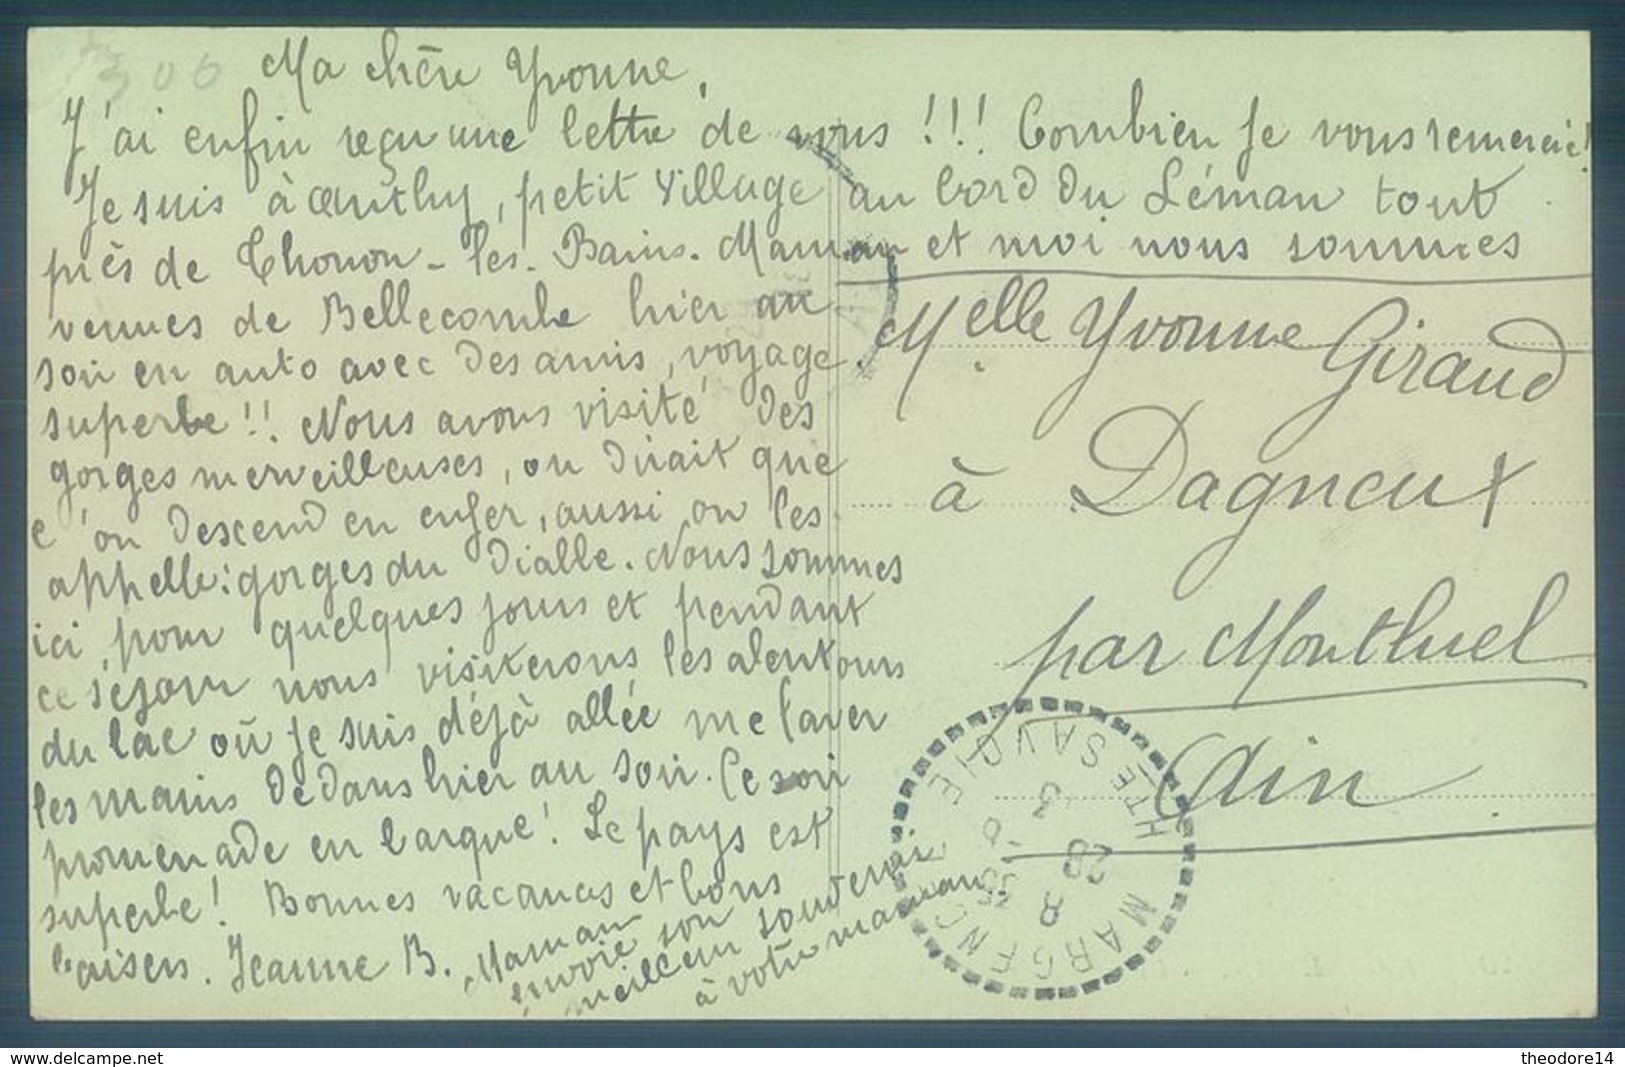 306
Ma chère Yvonne,
J'ai enfin reçu une lettre de vous !!! Combien je vous remercie!
Je suis à Anthy, petit village au bord du Léman tout
près de Thonon-les-Bains. Maman et moi nous sommes
venues de Bellecombe hier au
soir en auto avec des amis, voyage
superbe!! Nous avons visité des
gorges merveilleuses, on dirait que
l'on descend en enfer, aussi on les
appelle: gorges du Diable. Nous sommes
ici, pour quelques jours et pendant
ce séjour nous visiterons les alentours
du lac où je suis déjà allée me laver
les mains dedans hier au soir. Ce soir
promenade en barque! Le pays est
superbe! Bonnes vacances et bons
baisers. Jeanne B. Maman
envoie son
meilleur souvenir
à votre maman.
Melle Yvonne Giraud
à Dagneux
par Montluel
Ain
MARGENCEL
HTE SAVOIE
28 8
35
www.delcampe.net
theodore14